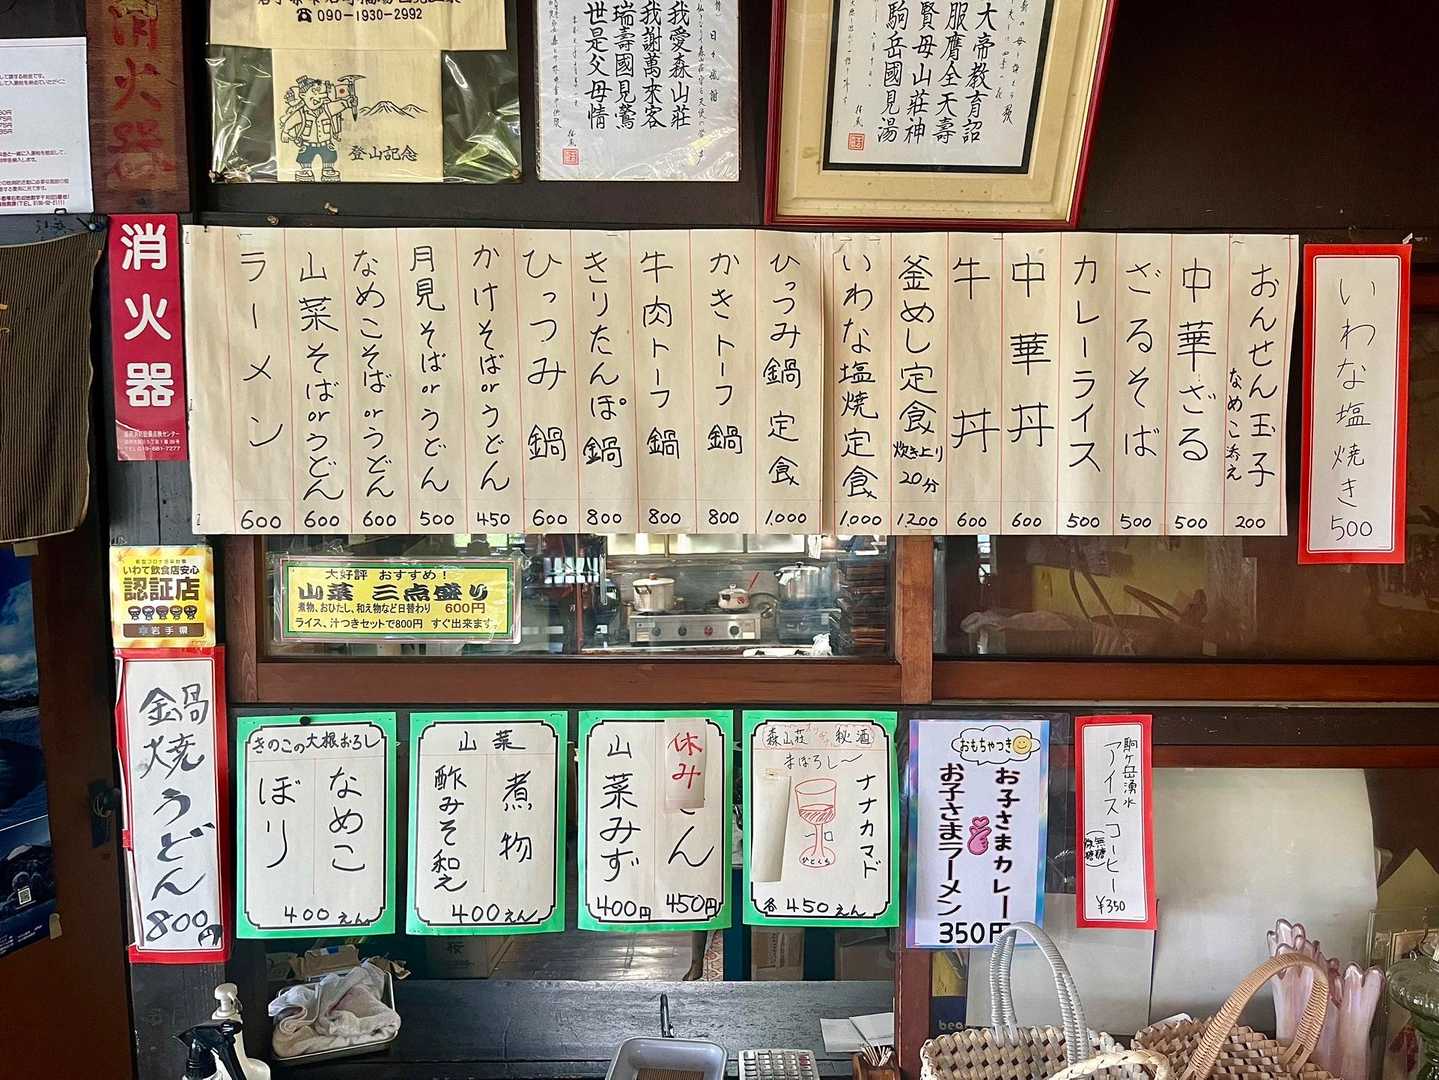 ☎090-1930-2992
登山記念
我愛森山荘
我謝萬来客
瑞壽國見鶯
世是父母情
大帝教育詔
服膺全天壽
賢母山荘神
駒岳國見湯
消火器
消火器
いわな塩焼き
500
おんせん玉子
なめこ添え
200
中華ざる
500
ざるそば
500
カレーライス
500
中華丼
600
牛丼
600
釜めし定食
炊き上り
20分
1200
いわな塩焼定食
1,000
ひっつみ鍋定食
1,000
かきトーフ鍋
800
牛肉トーフ鍋
800
きりたんぽ鍋
800
ひっつみ鍋
600
かけそばorうどん
450
月見そばorうどん
500
なめこそばorうどん
600
山菜そばorうどん
600
ラーメン
600
いわて飲食店安心
認証店
岩手県
大好評 おすすめ!
山菜 三点盛り
煮物、おひたし、和え物など日替わり 600円
ライス、汁つきセットで800円 すぐ出来ます。
鍋焼うどん
800円
きのこの大根おろし
なめこ
ぼり
400えん
山菜
煮物
酢みそ和え
400えん
休み
ん
450円
山菜みず
400円
森山荘 秘酒
まぼろし〜
ナナカマド
ひとくち
各450えん
おもちゃつき
お子さまカレー
お子さまラーメン
350円
駒ヶ岳湧水
アイスコーヒー
¥350